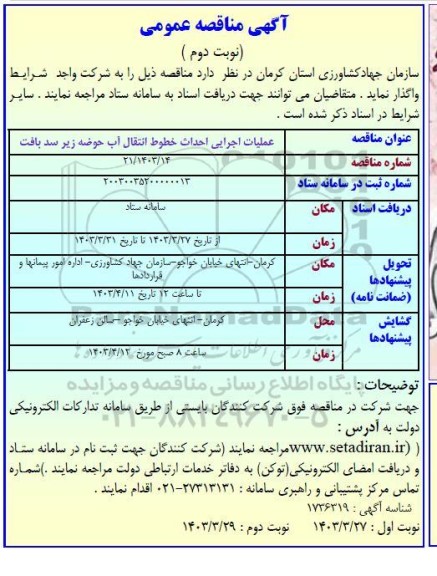 آگهی مناقصه عمومی
(نوبت دوم )
سازمان جهادکشاورزی استان کرمان در نظر دارد مناقصه ذیل را به شرکت واجد شرایط
واگذار نماید . متقاضیان می توانند جهت دریافت اسناد به سامانه ستاد مراجعه نمایند . سایر
شرایط در اسناد ذکر شده است .
عنوان مناقصه عملیات اجرایی احداث خطوط انتقال آب حوضه زیر سد بافت
شماره مناقصه ۲۱/۱۴۰۳/۱۴
شماره ثبت در سامانه ستاد ۲۰۰۳۰۰۳۵۲۰۰۰۰۰۱۳
دریافت اسناد مکان سامانه ستاد
زمان از تاریخ ۱۴۰۳/۳/۲۷ تا تاریخ ۱۴۰۳/۳/۳۱
تحویل پیشنهادها (ضمانت نامه) مکان کرمان-انتهای خیابان خواجو-سازمان جهاد کشاورزی- اداره امور پیمانها و
قراردادها
زمان تا ساعت ۱۲ تاریخ ۱۴۰۳/۴/۱۱
گشایش پیشنهادها محل کرمان- انتهای خیابان خواجو -سالن زعفران
زمان ساعت ۸ صبح مورخ ۱۴۰۳/۴/۱۲
پایگاه اطلاع رسانی مناقصه و مزایده
۰۲۱-۸۸۳۴۹۶۷۰-۵
توضیحات :
جهت شرکت در مناقصه فوق شرکت کنندگان بایستی از طریق سامانه تدارکات الکترونیکی
دولت به آدرس :
( (www.setadiran.irمراجعه نمایند (شرکت کنندگان جهت ثبت نام در سامانه ستاد
و دریافت امضای الکترونیکی(توکن) به دفاتر خدمات ارتباطی دولت مراجعه نمایند .)شماره
تماس مرکز پشتیبانی و راهبری سامانه : ۲۷۳۱۳۱۳۱-۰۲۱ اقدام نمایند .
شناسه آگهی : ۱۷۳۶۳۱۹
نوبت اول : ۱۴۰۳/۳/۲۷ نوبت دوم : ۱۴۰۳/۳/۲۹